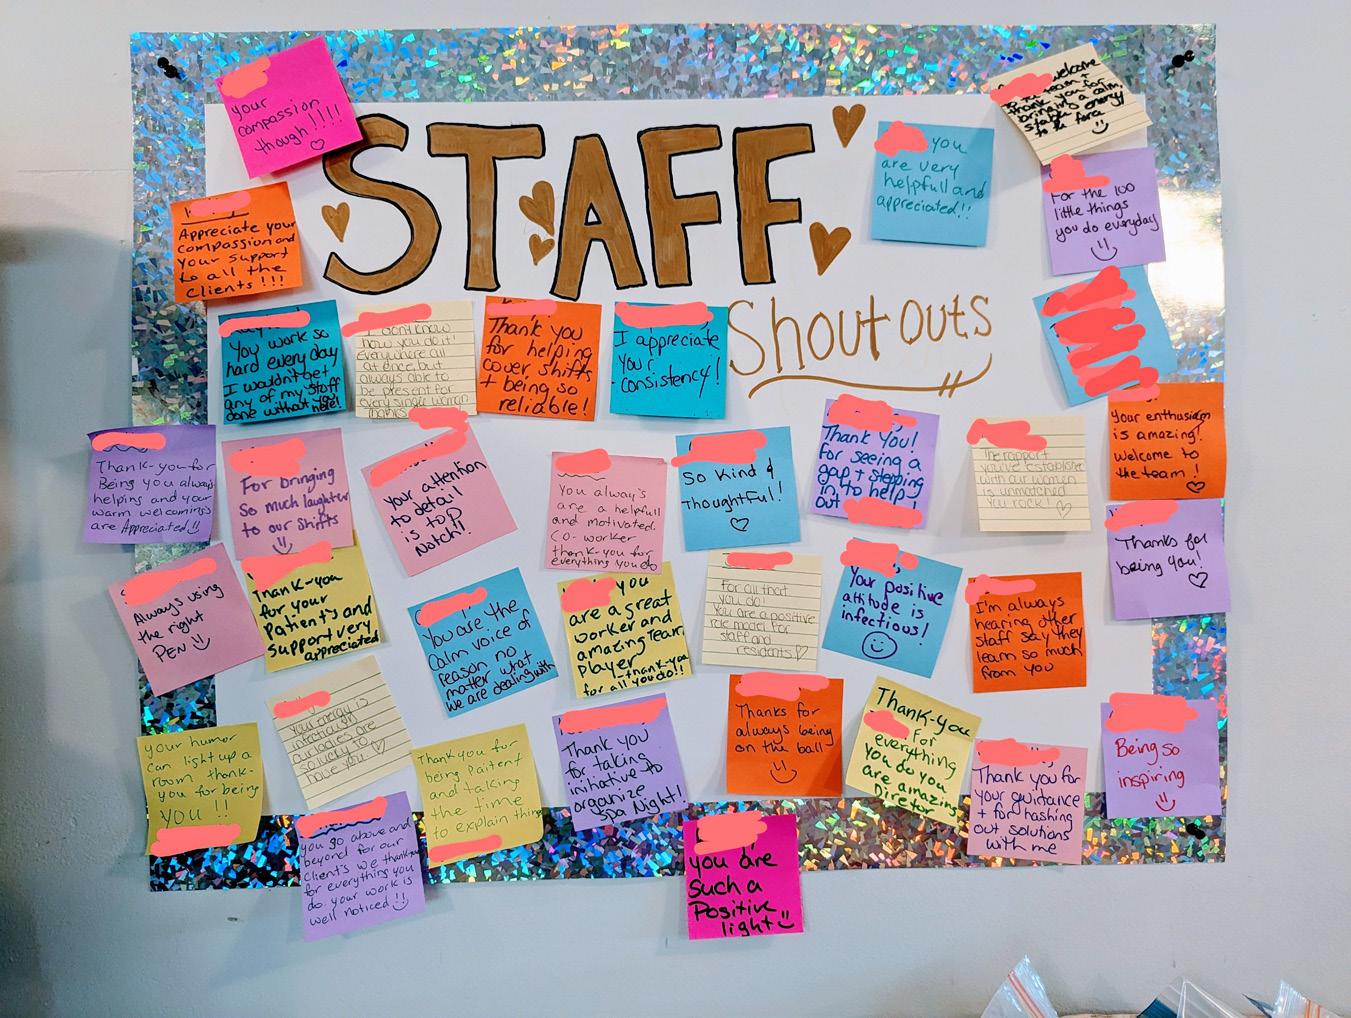 your
compassion
though!!!!
STAFF
Shout outs
you
are very
helpfull and
appreciated!!
welcome
to the team +
thank you for
bringing a calm,
stable energy
to the fara
For the 100
little things
you do everyday
Appreciate your
compassion and
your support
to all the
clients!!!
You work so
hard every day
I wouldn't get
any of my stuff
done without you here!
I don't know
how you do it!
Everywhere all
at once, but
always able to
be present for
every single woman
thanks
Thank you
for helping
cover shifts
+ being so
reliable!
I appreciate
your
consistency!
Your enthusism
is amazing!
Welcome to
the team!
Thank-you for
Being you always
helping and your
warm welcoming's
are Appreciated!!
For bringing
so much laughter
to our shifts
Your attention
to detail
is top
Notch!!
You always
are a helpful
and motivated.
Co-worker
thank-you for
everything you do
So Kind &
Thoughtful!
Thank You!
For seeing a
gap + stepping
in to help
out
The rapport
you've establishe
with our women
is unmatched
You rock!
Thanks for
being you!
Always using
the right
PEN
Thank-you
for your
Patient's and
Support very
appreciated
You are the
calm voice of
reason no
matter what
we are dealing with
you
are a great
worker and
amazing Team
player
-thank-you
for all you do!!
For all that
you do!
You are a positive
role model for
staff and
residents
Your positive
attitude is
infectious!
I'm always
hearing other
staff say they
learn so much
from you
your humor
can light up a
room thank-
you for being
YOU!!
Your energy is
infectious
our ladies are
so lucky to
have you
Thank you for
being Paitent
and taking
the time
to explain things
Thank you
for taking
initiative to
organize
Spa Night!
Thanks for
always being
on the ball
Thank-you
For
everything
you do you
are amazing
Director
Thank you for
your guidance
+ for hashing
out solutions
with me
Being so
inspiring
you go above and
beyond for our
Client's we thank-you
for everything you
do. your work is
well noticed!!
you are
such a
Positive
light